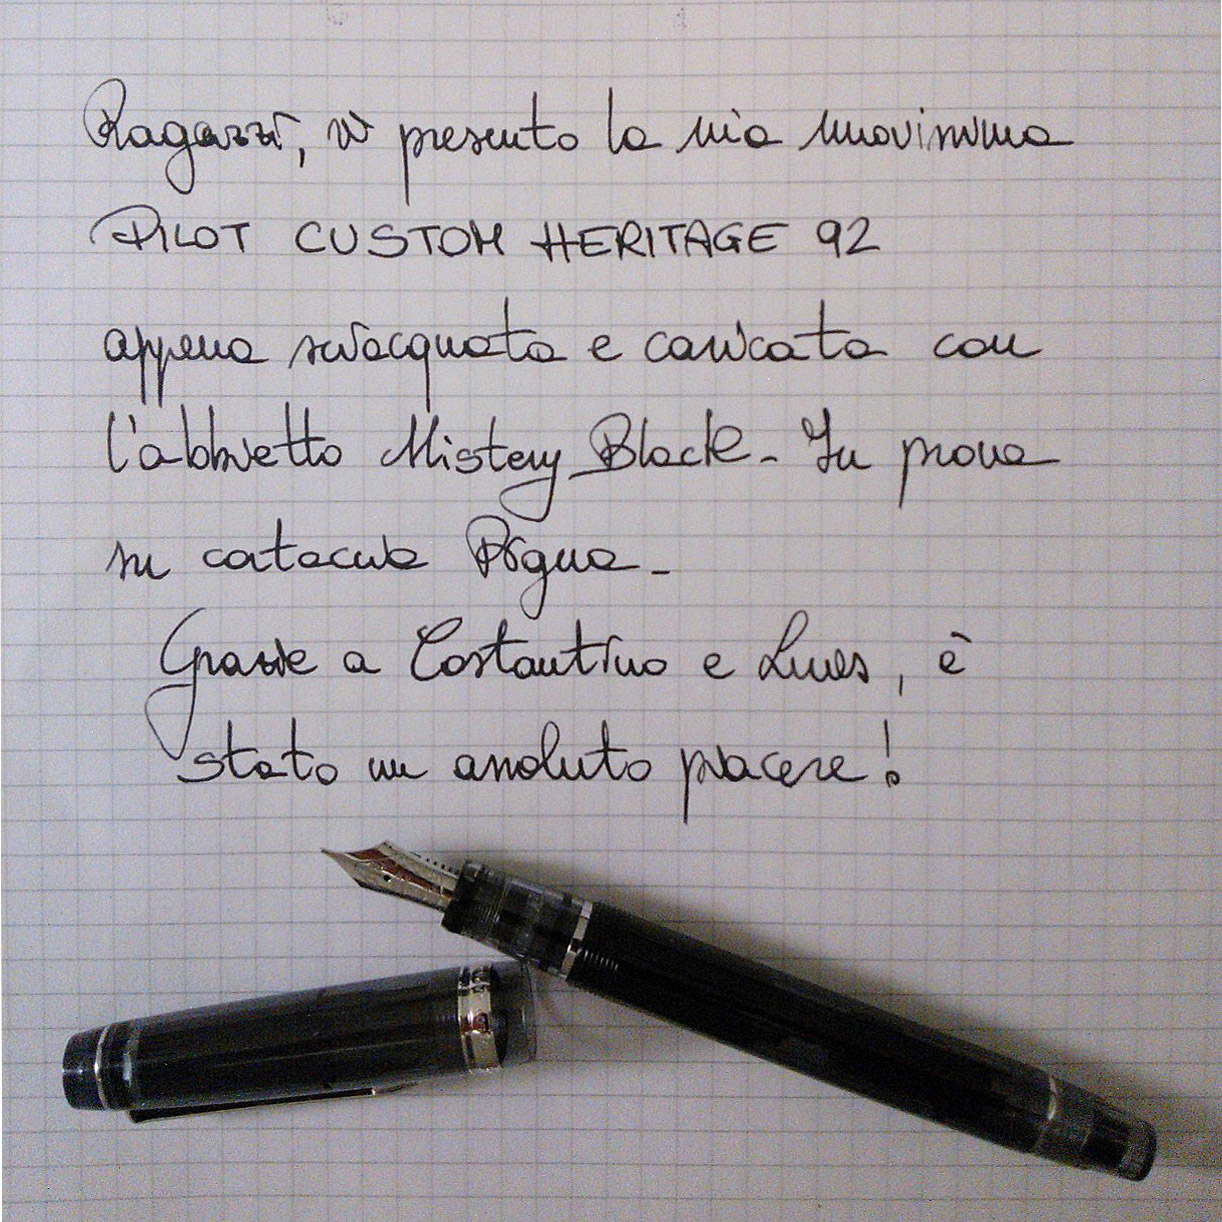 Ragazzi, vi presento la mia nuovissima
PILOT CUSTOM HERITAGE 92
appena sciacquata e caricata con
l'abbietto Mistery Black. In prova
su cartaccia Pigna.
Grazie a Costantino e , è
stato un assoluto piacere!